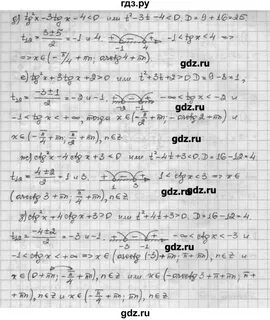 гдз.ру
д) tg²x-3tgx-4<0 или t²-3t-4<0. D=9+16=25.
t₁,₂=(3±5)/2=-1 и 4. -1 4 -1<tgx<4 =>
=> x∈(-π/4+πn; arctg4+πn).
е) tg²x+3tgx+2>0 или t²+3t+2>0, D=9-8=1,
t₁,₂=(-3±1)/2=-2 и -1. -2 -1 -∞<tgx<-2 и
-1<tgx<+∞, тогда x∈(-π/2+πn;
x∈(-π/4+πn; π/2+πn), n∈z.
ж) ctg²x-4ctgx+3<0 или t²-4t+3<0. D=16-12=4
t₁,₂=(4±2)/2=1 и 3. 1 3 1<ctgx<3 => x∈
(arcctg3+πn; π/4+πn), n∈z
з) ctg²x+4ctgx+3>0 или t²+4t+3>0. D=16-12=4.
t₁,₂=(-4±2)/2=-3 и -1. -3 -1 -∞<ctgx<-3 и
-1<ctgx<+∞ => x∈(arcctg(-3)+πn; π+πn) и
x∈(0+πn; -π/4+πn), n∈z или x∈(-arcctg3+π+πn; π+
+πn), n∈z и x∈(-π/4+πn; πn), n∈z
гдз.рф